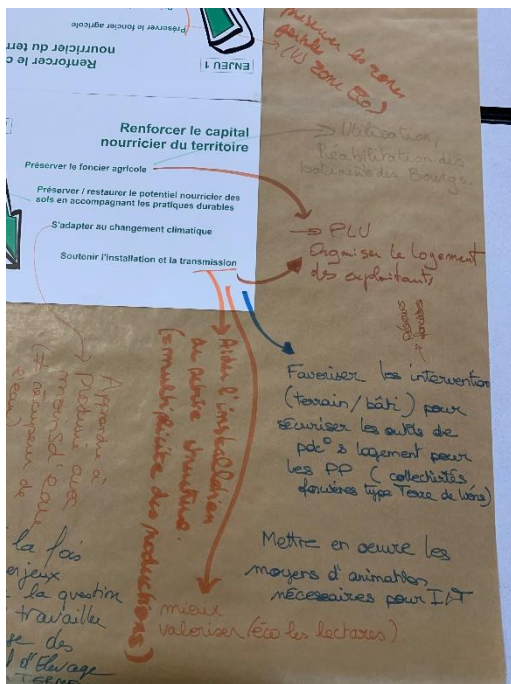 Préserver le foncier agricole
nourricier du terr
Renforcer le c
ENJEU 1
préserver les zones
(VS zone Éco)
Renforcer le capital
nourricier du territoire
Préserver le foncier agricole
Préserver / restaurer le potentiel nourricier des
sols en accompagnant les pratiques durables
S'adapter au changement climatique
Soutenir l'installation et la transmission
Utilisation,
Réabilitation des
bâtiments des Bourgs.
→ PLU
Organiser le logement
des exploitants
foncières
Favoriser les intervention
(terrain/bâti) pour
sécuriser les outils de
pdc° & logement pour
les PP (collectivités
foncières type Terre de liens)
Mettre en oeuvre les
moyens d'animation
nécessaires pour I&T
Aider l'installation
structure.
(= multiplicité des productions)
mieux
valoriser (éco les hectares)
Apprendre à
produire avec
moins d'eau
la fois
enjeux
la question
travailler
se des
d'Elevage